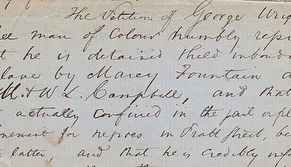 The Petition of George Wri
ee man of Colour humbly repre
t he is detained & held in bonda
lave by Marcy Fountain a
M. & W. L. Campbell, and that
actually confined in the jail or pl
nement for negroes in Pratt Street, be
latter, and that he is credibly inf